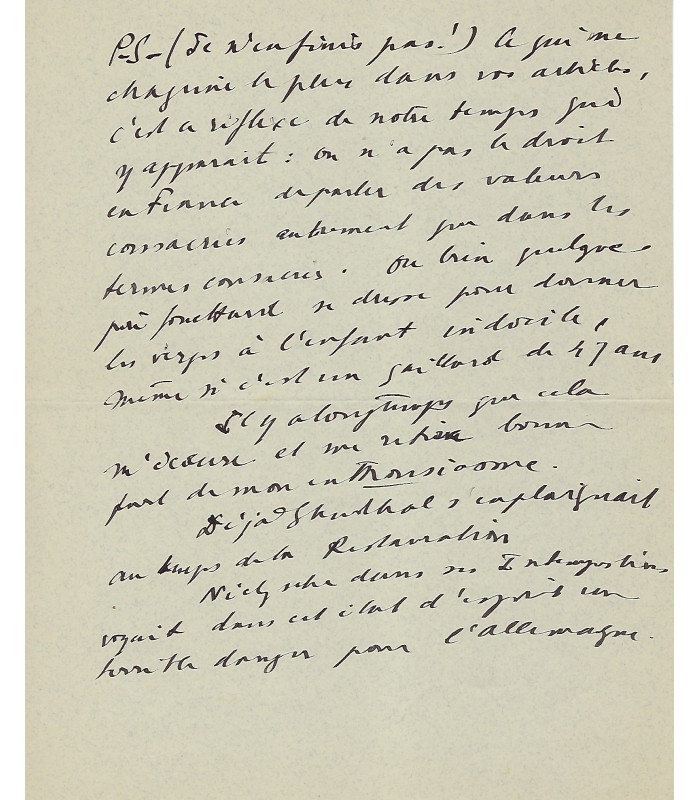 P.S. - (Je n'en finis pas!) Ce qui me
chagrine le plus dans vos articles,
c'est ce réflexe de notre temps qui
y apparait : on n'a pas le droit
en France de parler des valeurs
consacrées autrement que dans les
termes consacrés. Ou bien quelque
père fouettard se dresse pour donner
les verges à l'enfant indocile,
même si c'est un gaillard de 47 ans
Il y a longtemps que cela
m'écœure et me retire bonne
part de mon enthousiasme.
Déjà Stendhal s'en plaignait
au temps de la Restauration
Nietzsche dans ses Intempestives
voyait dans cet état d'esprit un
terrible danger pour l'allemagne.